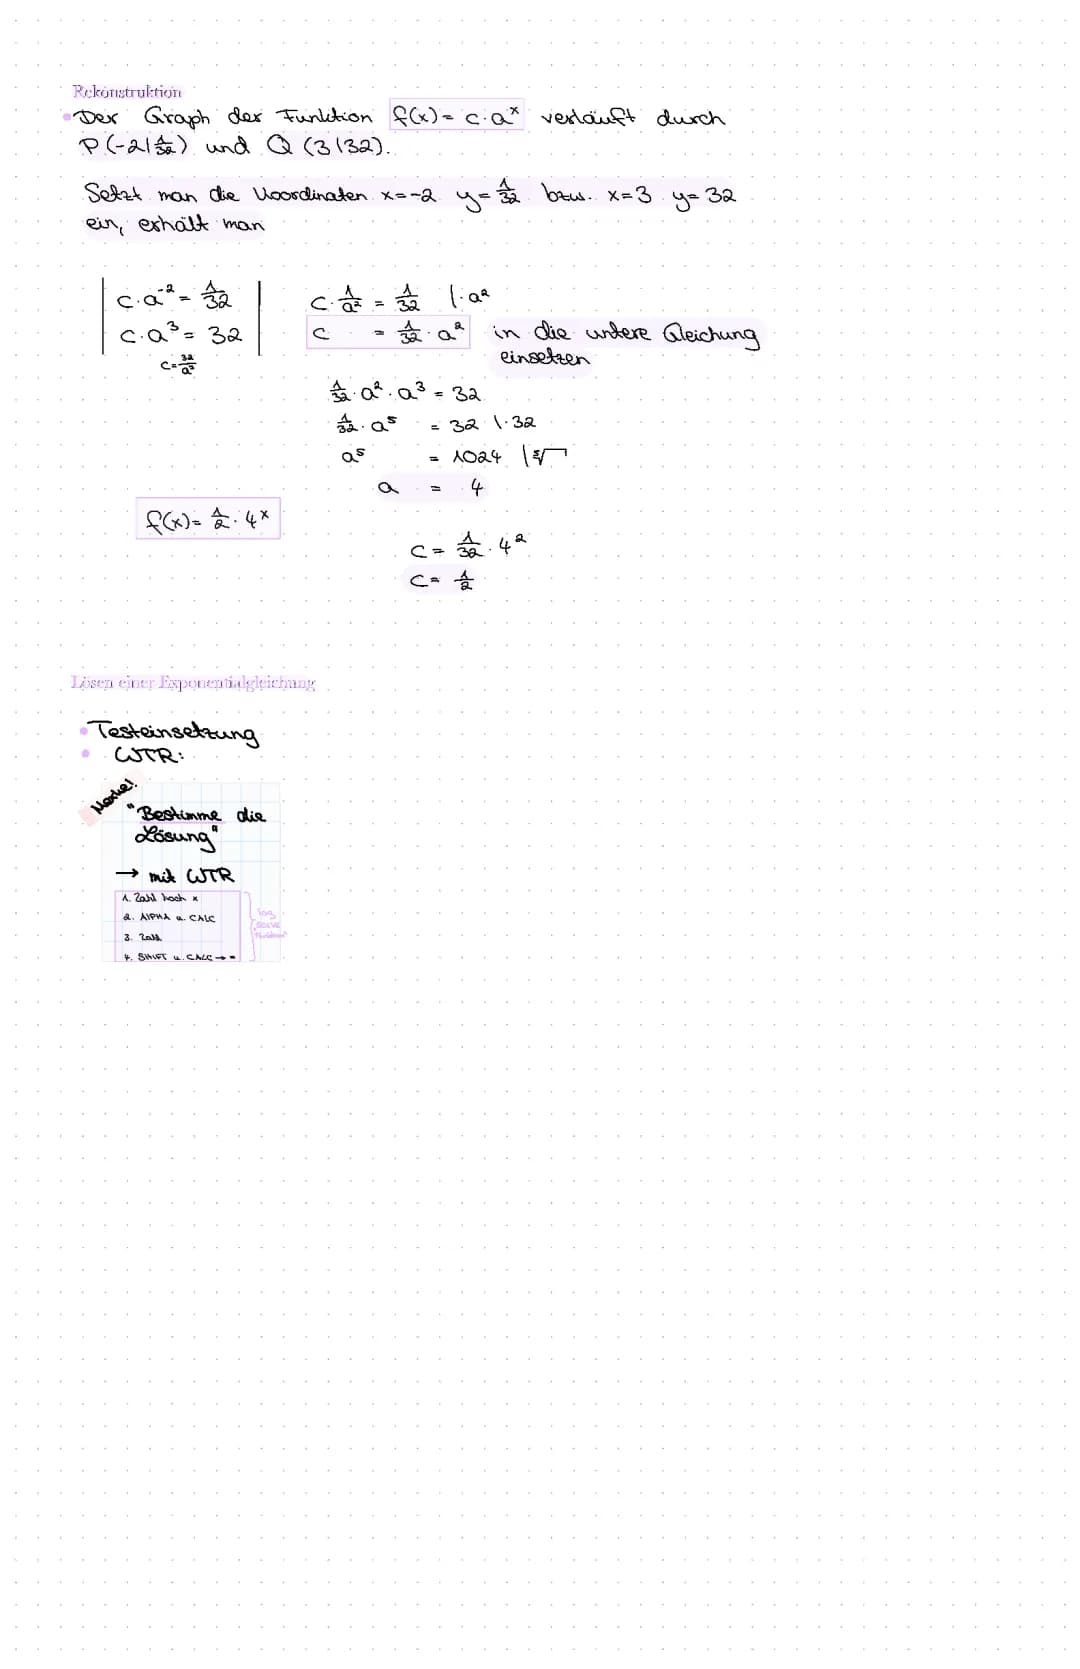 Rekonstruktion
• Der Graph der Funktion f(x) = c·a^x verläuft durch
P(-2|1/32) und Q (3|32).
Setzt man die Koordinaten x=-2 y=1/32 bzw. x=3 y=32
ein, erhält man
| c·a^-2 = 1/32 |
| c·a^3 = 32 |
c=32/a^3
c·1/a^2 = 1/32 |·a^2
c = 1/32·a^2 in die untere Gleichung
einsetzen
1/32·a^2·a^3 = 32
1/32·a^5 = 32 |·32
a^5 = 1024 |⁵√
a = 4
f(x)= 1/2·4^x
c = 1/32·4^2
c = 1/2
Lösen einer Exponentialgleichung
• Testeinsetzung
• WTR:
Merke!
"Bestimme die
Lösung"
→ mit WTR
1. Zahl hoch x
2. AlPHA u. CALC
3. Zahl
4. SHIFT u. CALC → =